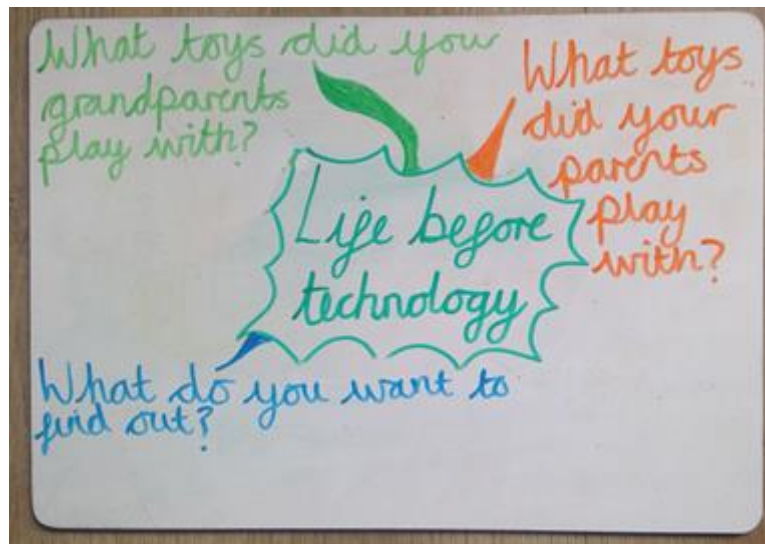 What toys did you
grandparents
play with?
What toys
did your
parents
play
with?
Life before
technology
What do you want to
find out?